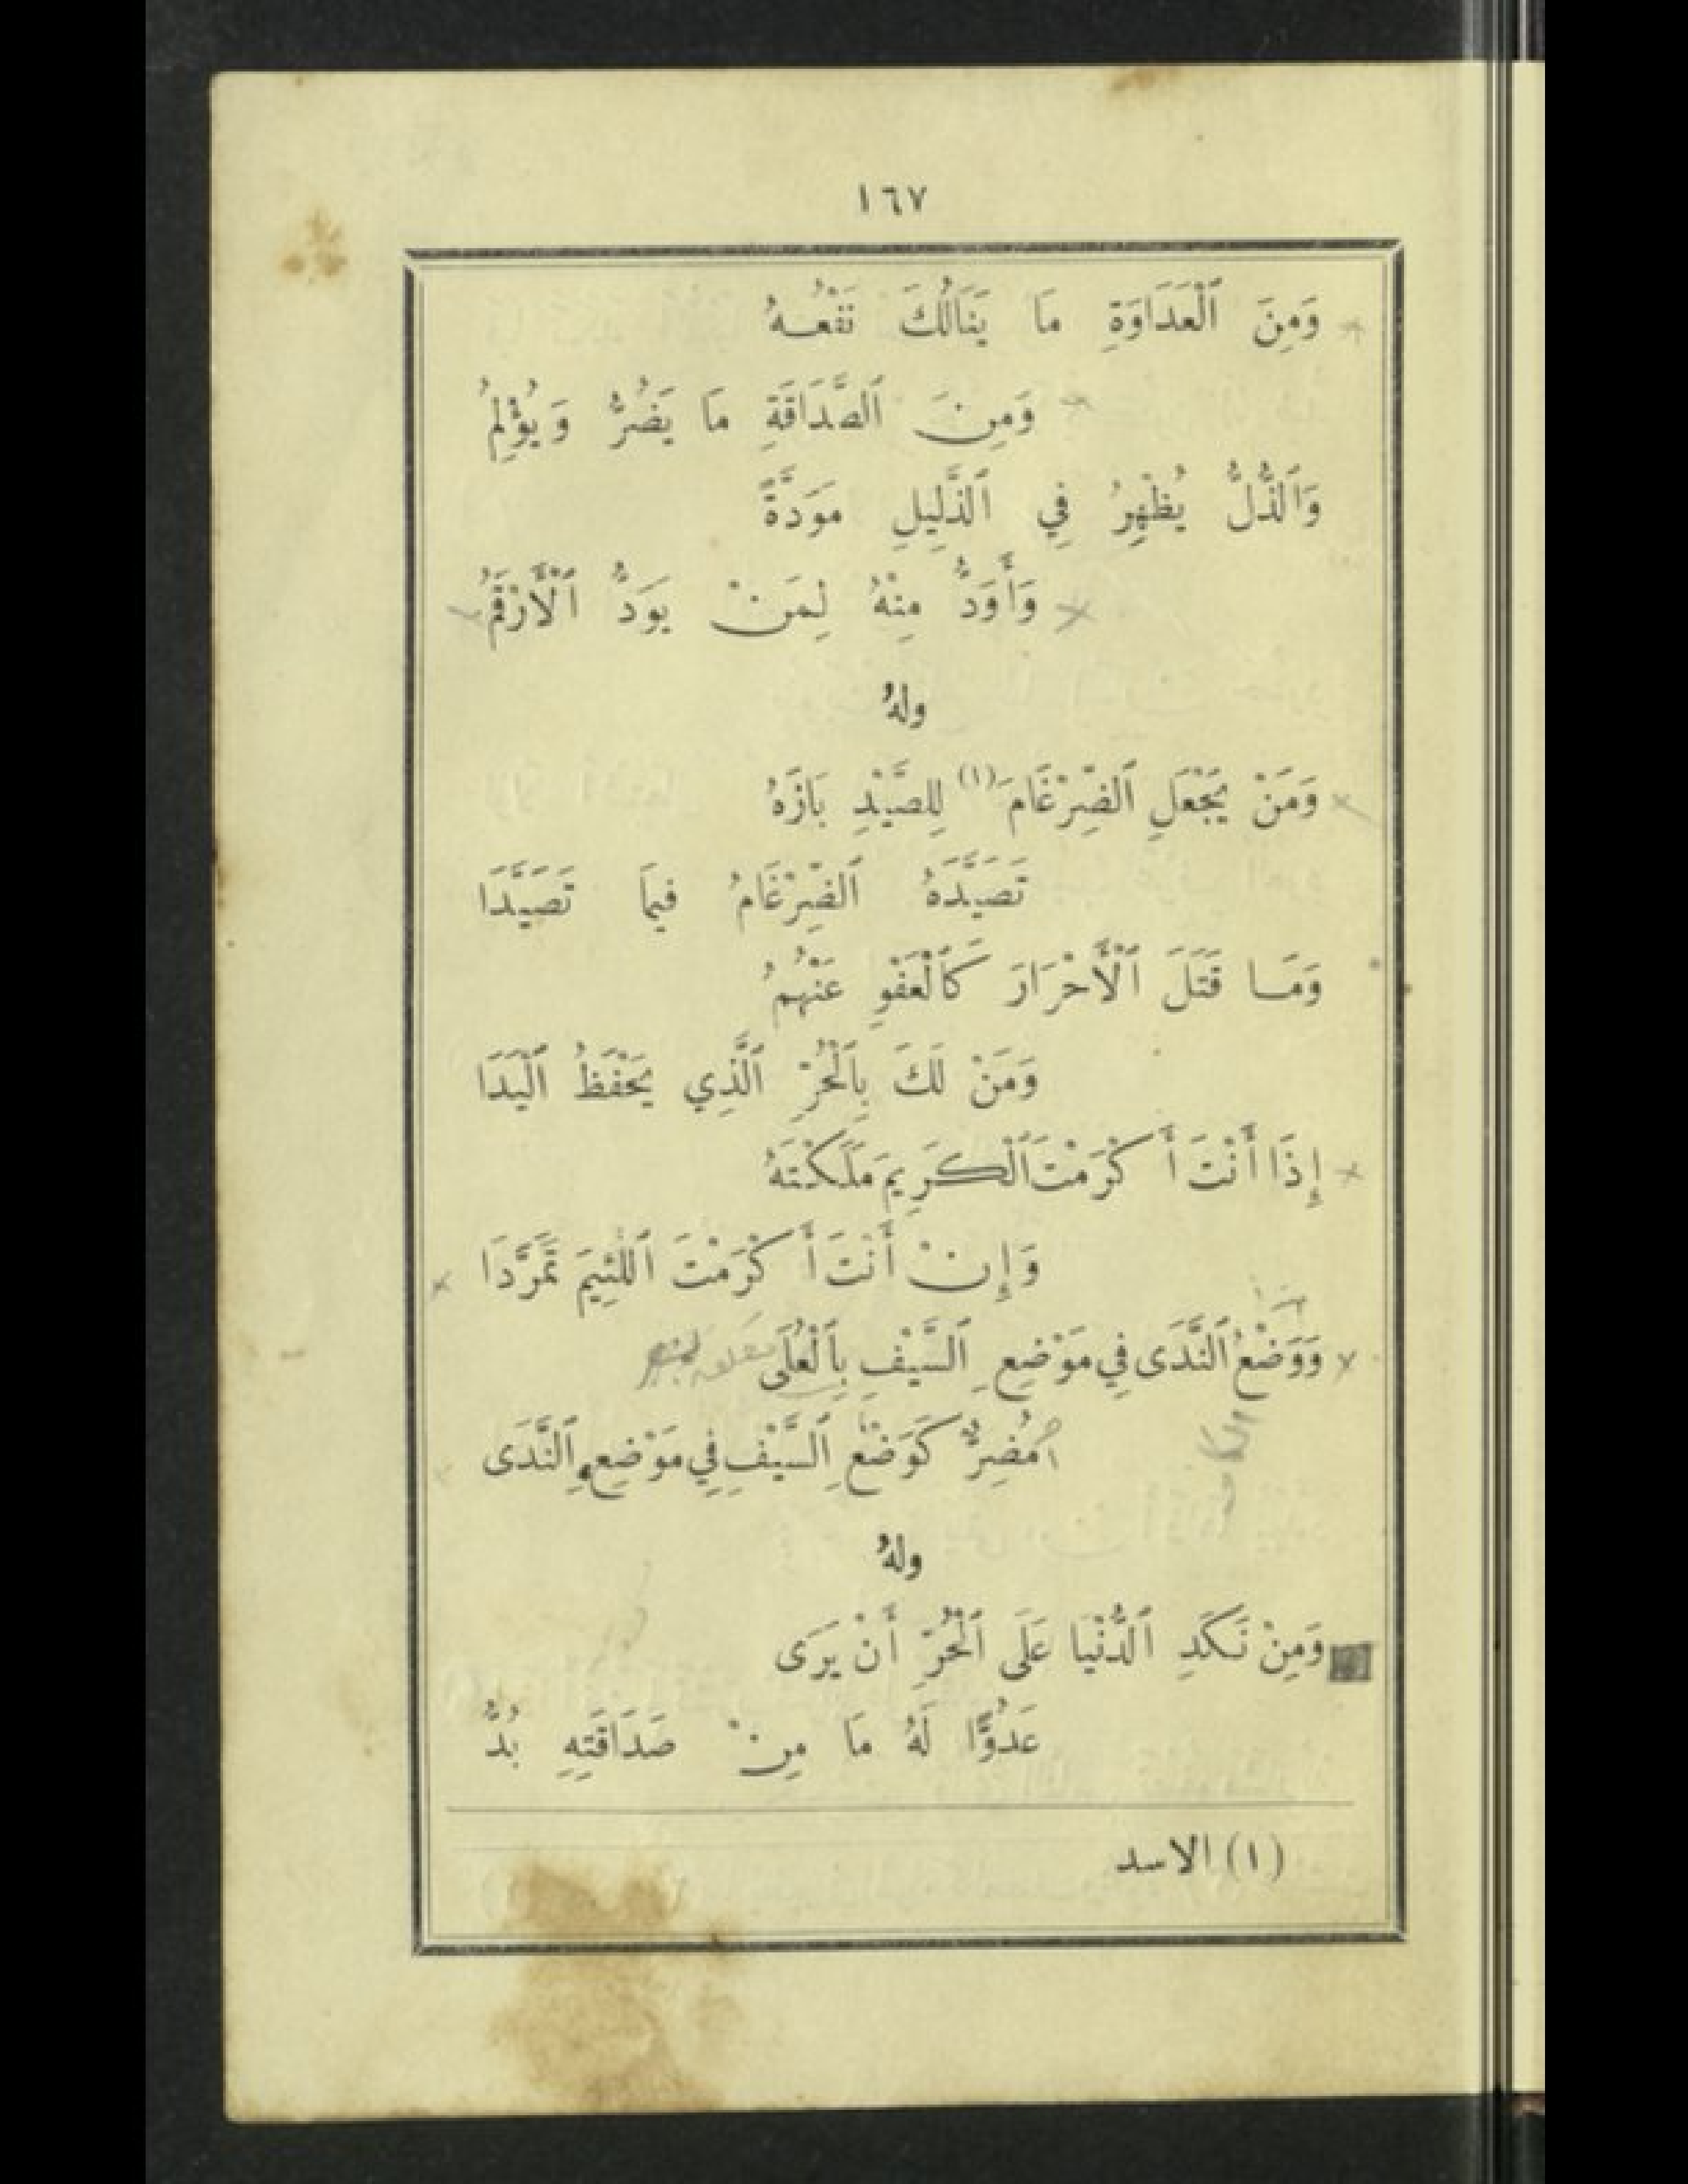 ١٦٧
وَمِنَ ٱلْعَدَاوَةِ مَا يَنَالُكَ نَفْعُهُ
وَمِنَ ٱلصَّدَاقَةِ مَا يَضُرُّ وَيُؤْلِمُ
وَٱلذُّلُّ يُظْهِرُ فِي ٱلذَّلِيلِ مَوَدَّةً
وَأَوَدُّ مِنْهُ لِمَنْ يَوَدُّ ٱلْأَرْقَمُ
ولهُ
وَمَنْ يَجْعَلِ ٱلضِّرْغَامَ (١) لِلصَّيْدِ بَازَهُ
تَصَيَّدَهُ ٱلضِّرْغَامُ فِيمَا تَصَيَّدَا
وَمَا قَتَلَ ٱلْأَحْرَارَ كَٱلْعَفْوِ عَنْهُمُ
وَمَنْ لَكَ بِٱلْحُرِّ ٱلَّذِي يَحْفَظُ ٱلْيَدَا
إِذَا أَنْتَ أَكْرَمْتَ ٱلْكَرِيمَ مَلَكْتَهُ
وَإِنْ أَنْتَ أَكْرَمْتَ ٱللَّئِيمَ تَمَرَّدَا
وَوَضْعُ ٱلنَّدَى فِي مَوْضِعِ ٱلسَّيْفِ بِٱلْعُلَى
مُضِرٌّ كَوَضْعِ ٱلسَّيْفِ فِي مَوْضِعِ ٱلنَّدَى
ولهُ
وَمِنْ نَكَدِ ٱلدُّنْيَا عَلَى ٱلْحُرِّ أَنْ يَرَى
عَدُوًّا لَهُ مَا مِنْ صَدَاقَتِهِ بُدُّ
(١) الاسد